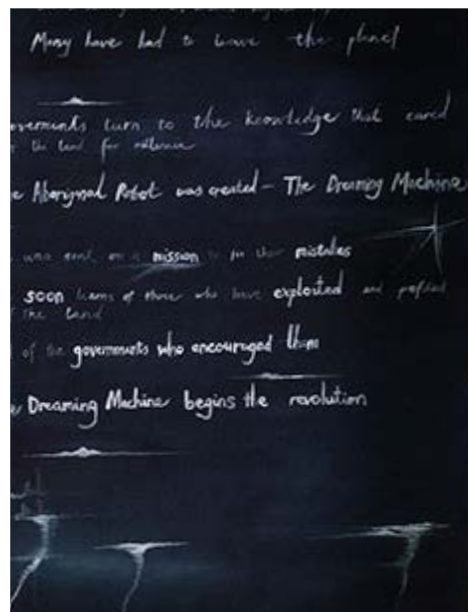 Many have had to leave the planet
overnments turn to the knowledge that cared
the land for millennia
e Aboriginal Robot was created - The Dreaming Machine
was sent on a mission to fix their mistakes
soon learns of those who have exploited and profited
the land
of the governments who encouraged them
e Dreaming Machine begins the revolution